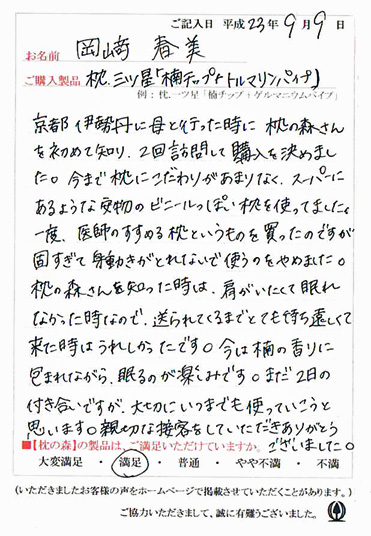 ご記入日 平成23年9月9日
お名前 岡崎 春美
ご購入製品 枕.三ツ星「楠チップ+トルマリンパイプ」
例：枕.一ツ星「楠チップ+ゲルマニウムパイプ」
京都伊勢丹に母と行った時に枕の森さん
を初めて知り、2回訪問して購入を決めまし
た。今まで枕にこだわりがあまりなく、スーパーに
あるような安物のビニールっぽい枕を使ってました。
一度、医師のすすめる枕というものを買ったのですが
固すぎて身動きがとれないで使うのをやめました。
枕の森さんを知った時は、肩がいたくて眠れ
なかった時なので、送られてくるまでとても待ち遠しくて
来た時はうれしかったです。今は楠の香りに
包まれながら、眠るのが楽しみです。まだ2日の
付き合いですが、大切にいつまでも使っていこうと
思います。親切な接客をしていただきありがとう
ございました。
■【枕の森】の製品は、ご満足いただけていますか。
大変満足 ・ 満足 ・ 普通 ・ やや不満 ・ 不満
(いただきましたお客様の声をホームページで掲載させていただくことがあります。)
ご協力いただきまして、誠に有難うございました。